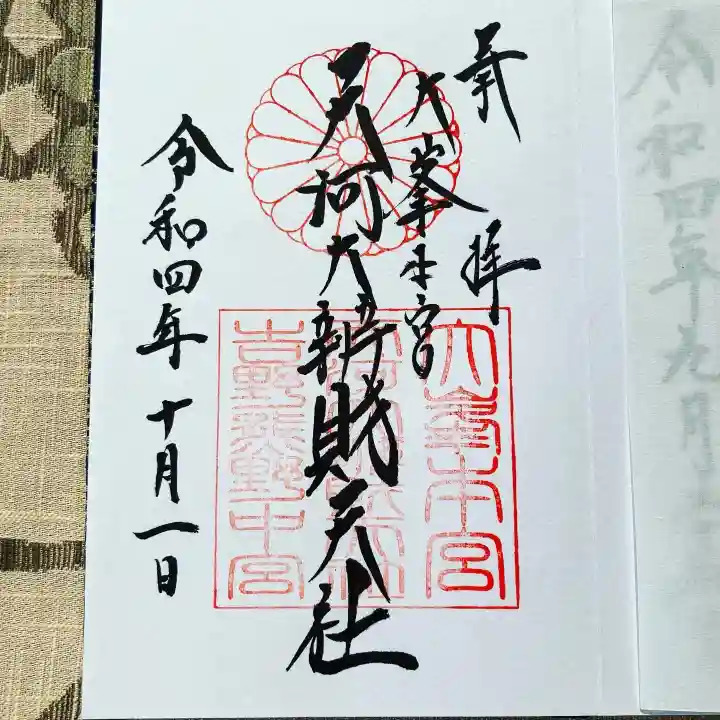 奉拝
大峯本宮
天河大辨財天社
令和四年十月一日
大峯本宮
吉野熊野中宮
令和四年九月